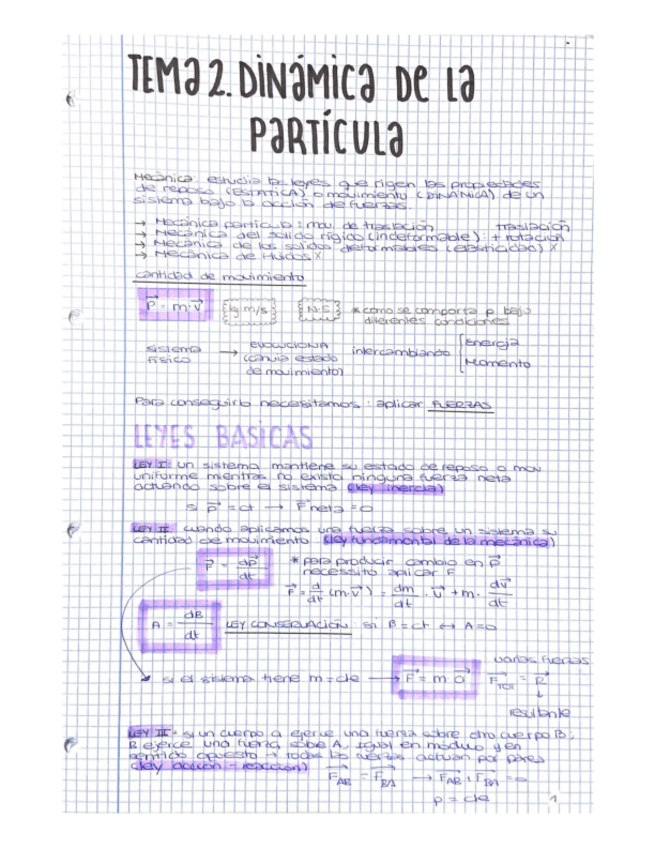 TEMA 2. DINÁMICA DE LA
PARTÍCULA
Mecánica: estudia las leyes que rigen las propiedades
de reposo (ESTÁTICA) o movimiento (DINÁMICA) de un
sistema bajo la acción de fuerzas.
→ Mecánica partícula: mov. de traslación traslación
→ Mecánica del sólido rígido (indeformable): + rotación
→ Mecánica de los sólidos deformables (elasticidad) X
→ Mecánica de Fluidos X
Cantidad de movimiento
P = m·v kg m/s N·S * como se comporta p bajo
diferentes condiciones
sistema físico → EVOLUCIONA (canvia estado de movimiento) intercambiando [Energía Momento
Para conseguirlo necesitamos: aplicar FUERZAS
LEYES BASICAS
LEY I: un sistema mantiene su estado de reposo o mov
uniforme mientras no exista ninguna fuerza neta
actuando sobre el sistema (ley inercia)
si p = ct → F neta = 0
LEY II: cuando aplicamos una fuerza sobre un sistema su
cantidad de movimiento (ley fundamental de la mecánica)
F = dp/dt * para producir cambio en p
necessito aplicar F
F = d/dt (m·v) = dm/dt · v + m · dv/dt
A = dB/dt LEY CONSERVACIÓN: si B = ct ↔ A = 0
varias fuerzas
si el sistema tiene m = cte → F = m a F TOT = R
↓
resultante
LEY III: si un cuerpo A ejerce una fuerza sobre otro cuerpo B,
B ejerce una fuerza sobre A, igual en módulo y en
sentido opuesto → todas las fuerzas actuan por pares
(ley acción - reacción) F AB = F BA → F AB + F BA = 0
p = cte 1